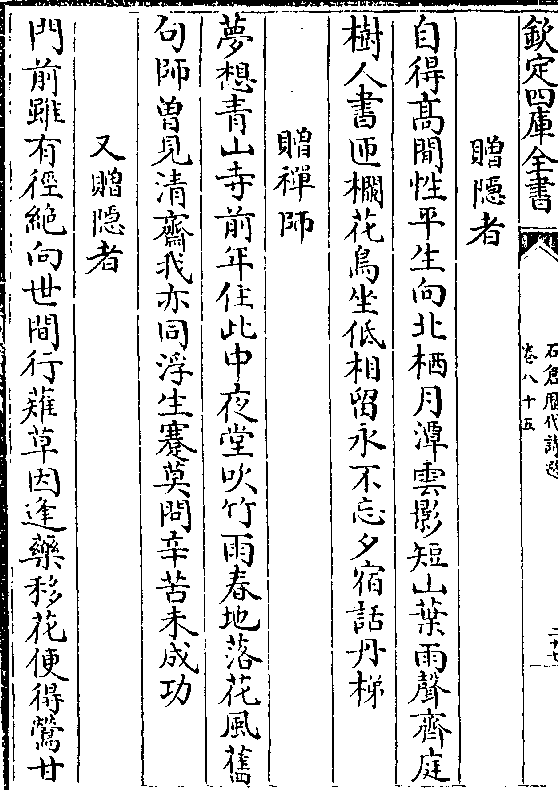 欽定四庫全書
石倉歷代詩選
卷八十五
二十七
贈隱者
自得髙閒性平生向北栖月潭雲影短山葉雨聲齊庭
樹人書匝欄花鳥坐低相留永不忘夕宿話丹梯
贈禪師
夢想青山寺前年住此中夜堂吹竹雨春地落花風舊
句師曽見清齋我亦同浮生蹇莫問辛苦未成功
又贈隱者
門前雖有徑絶向世間行薙草因逢藥移花便得鶯甘